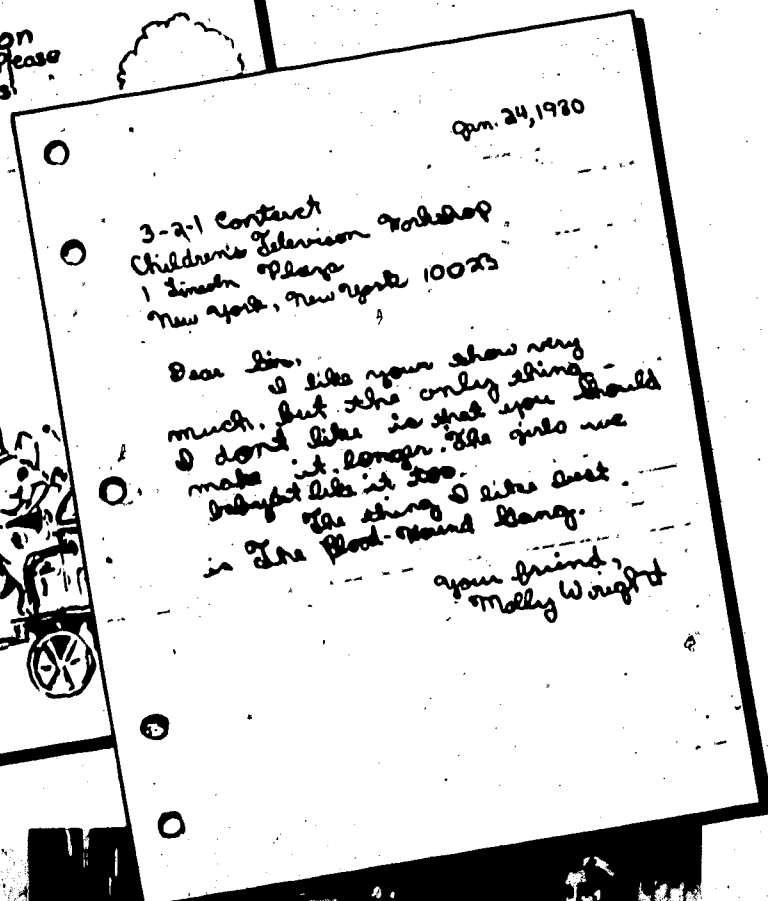 on
Please
s
Jan. 24, 1980
3-2-1 Contact
Children's Television Workshop
1 Lincoln Plaza
New York, New York 10023
Dear Sir,
I like your show very
much, but the only thing
I don't like is that you should
make it longer. The girls we
babysit like it too.
The thing I like best
is The Blood-Hound Gang.
Your friend,
Molly Wright